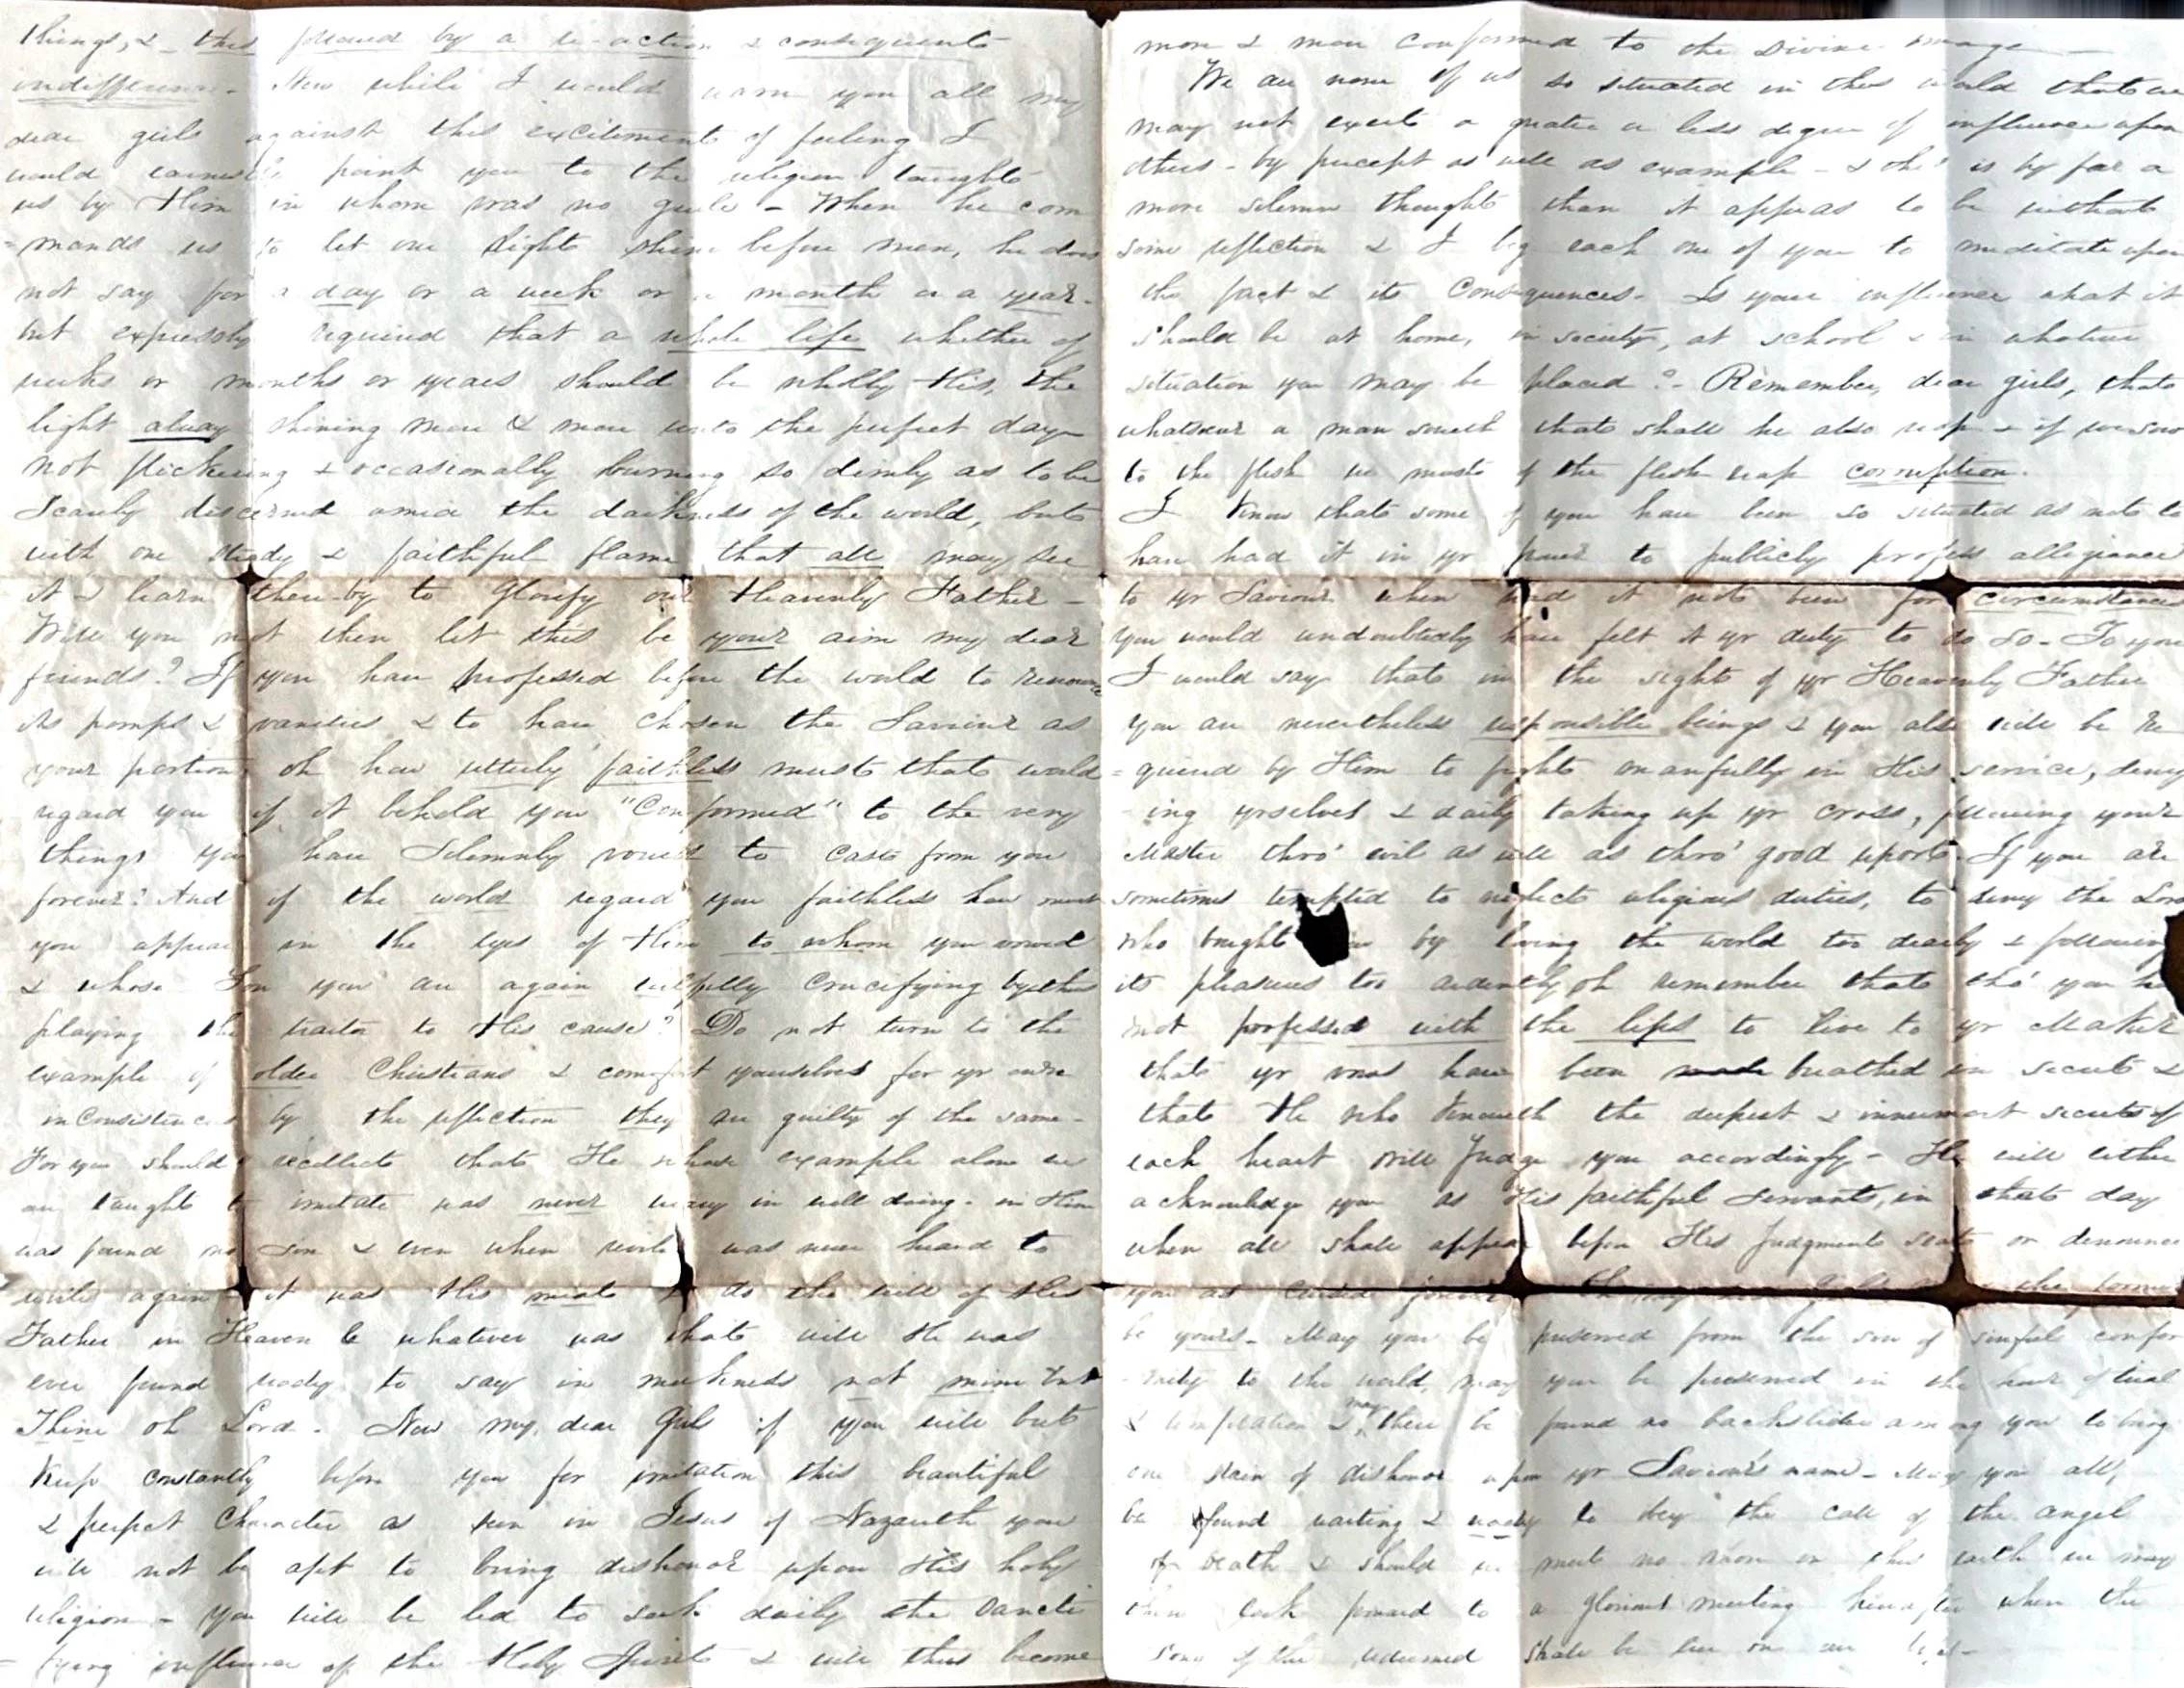 things, & this followed by a re-action & consequent
indifference. Now while I would warn you all my
dear girls against this excitement of feeling I
would earnestly point you to the religion taught
us by Him in whom was no guile - When he com
=mands us to let our light shine before men, he does
not say for a day or a week or a month or a year.
but expressly required that a whole life whether of
weeks or months or years should be wholly His, the
light alway shining more & more unto the perfect day
not flickering & occasionally burning so dimly as to be
Scarcely discerned amid the darkness of the world, but
with one steady & faithful flame that all may see
it & learn there-by to Glorify our Heavenly Father -
Will you not then let this be your aim my dear
friends? If you have professed before the world to renounce
its pomps & vanities & to have chosen the Saviour as
your portion, oh how utterly faithless must that world
regard you if it behold you "Conformed" to the very
things you have Solemnly vowed to cast from you
forever? And if the world regard you faithless how must
you appear in the eyes of Him to whom you vowed
& whose Son you are again wilfully Crucifying by thus
playing the traitor to His cause? Do not turn to the
example of older Christians & comfort yourselves for yr own
inconsistencies by the reflection they are guilty of the same -
For you should recollect that He whose example alone we
are taught to imitate was never weary in well doing - in Him
was found no sin & even when reviled was never heard to
revile again - it was His meat to do the will of His
Father in Heaven & whatever was that will He was
ever found ready to say in meekness not mine but
Thine oh Lord. Now my dear Girls if you will but
Keep constantly before you for imitation this beautiful
& perfect Character as seen in Jesus of Nazareth you
will not be apt to bring dishonor upon His holy
religion - You will be led to seek daily the Sancti
=fying influence of the Holy Spirit & will thus become
more & more Conformed to the Divine image -
We are none of us so situated in this world that we
may not exert a greater or less degree of influence upon
others - by precept as well as example - & this is by far a
more solemn thought than it appears to be without
some reflection & I beg each one of you to meditate upon
the fact & its Consequences - Is your influence what it
should be at home, in society, at school & in whatever
situation you may be placed? - Remember, dear girls, that
whatsoever a man soweth that shall he also reap & if we sow
to the flesh we must of the flesh reap corruption.
I Know that some of you have been so situated as not to
have had it in yr power to publicly profess allegiance
to yr Saviour when had it not been for circumstances
you would undoubtedly have felt it yr duty to do so - To you
I would say that in the sight of yr Heavenly Father
you are nevertheless responsible beings & you also will be re
=quired by Him to fight manfully in His service, deny
-ing yrselves & daily taking up yr cross, following your
Master thro' evil as well as thro' good report - If you are
sometimes tempted to neglect religious duties, to deny the Lord
who bought by loving the world too dearly & following
its pleasures too ardently, oh remember that tho' you
not professed with the lips to live to yr Maker
that yr vows have been made breathed in secret &
that He who knoweth the deepest & innermost secrets of
each heart will Judge you accordingly - He will either
acknowledge you as His faithful Servants, in that day
when all shall appear before His Judgment seat or denounce
you as the former
be yours - May you be preserved from the sin of sinful confor
-mity to the world, may you be preserved in the hour of trial
& temptation & may there be found no backslider among you to bring
one stain of dishonor upon yr Saviour's name - May you all,
be found waiting & ready to obey the call of the angel
of Death & should we meet no more on this earth we may
then look forward to a glorious meeting hereafter when the
song of the redeemed shall be